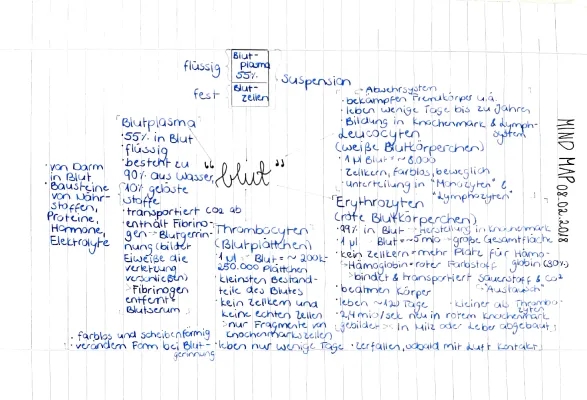 MIND MAP 08.02.2018
flüssig
Blut-
plasma
55%
fest
Blut-
zellen
Suspension
"blut"
Blutplasma
· 55% in Blut
· flüssig
· besteht zu
90% aus Wasser,
10% gelöste
Stoffe
· von Darm
in Blut
· Bausteine
von Nähr-
stoffen,
Proteine,
Hormone,
Elektrolyte
· transportiert CO2 ab
· enthält Fibrino-
gen → Blutgerin-
nung (bilder
Eiweiße die
verletzung
verschließen)
> Fibrinogen
entfernt =
Blutserum
Thrombocyten
(Blutplättchen)
1 µl Blut = ~ 200k-
250.000 Plättchen
· kleinsten Bestand-
teile des Blutes
· kein Zellkern und
keine echten Zellen
> nur Fragmente von
Knochenmarkszellen
· farblos und scheibenförmig
· verändern Form bei Blut-
gerinnung
· leben nur wenige Tage
· zerfallen, sobald mit Luft Kontakt
· Abwehrsystem
· bekämpfen Fremdkörper u.ä.
· leben wenige Tage bis zu Jahren
· Bildung in Knochenmark & Lymph-
system
Leucocyten
(weiße Blutkörperchen)
· 1 µl Blut = ~ 8.000
· Zellkern, farblos, beweglich
· unterteilung in "Monozyten" &
"Lymphozyten"
Erythrozyten
(rote Blutkörperchen)
· 99% in Blut · Herstellung in Knochenmark
· 1 µl Blut = ~5 mio · große Gesamtfläche
· kein Zellkern = mehr Platz für Hämo-
globin (30%)
· Hämoglobin = roter Farbstoff
bindet & transportiert Sauerstoff & CO2
"Austausch"
· beatmen Körper
· leben ~ 120 Tage · kleiner als Thrombo-
zyten
· 2,4 mio/sek neu in rotem Knochenmark
gebildet > in Milz oder Leber abgebaut